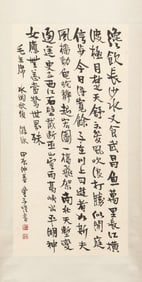 才飲長沙水又食武昌魚萬里長江橫
渡極目楚天舒不管風吹浪打勝似閒庭
信步今日得寬餘子在川上曰逝者如斯夫
風檣動龜蛇靜起宏圖一橋飛架南北天塹變
通途更立西江石壁截斷巫山雲雨高峽出平湖神
女應無恙當驚世界殊
毛主席 水調歌頭 游泳 甲辰仲春